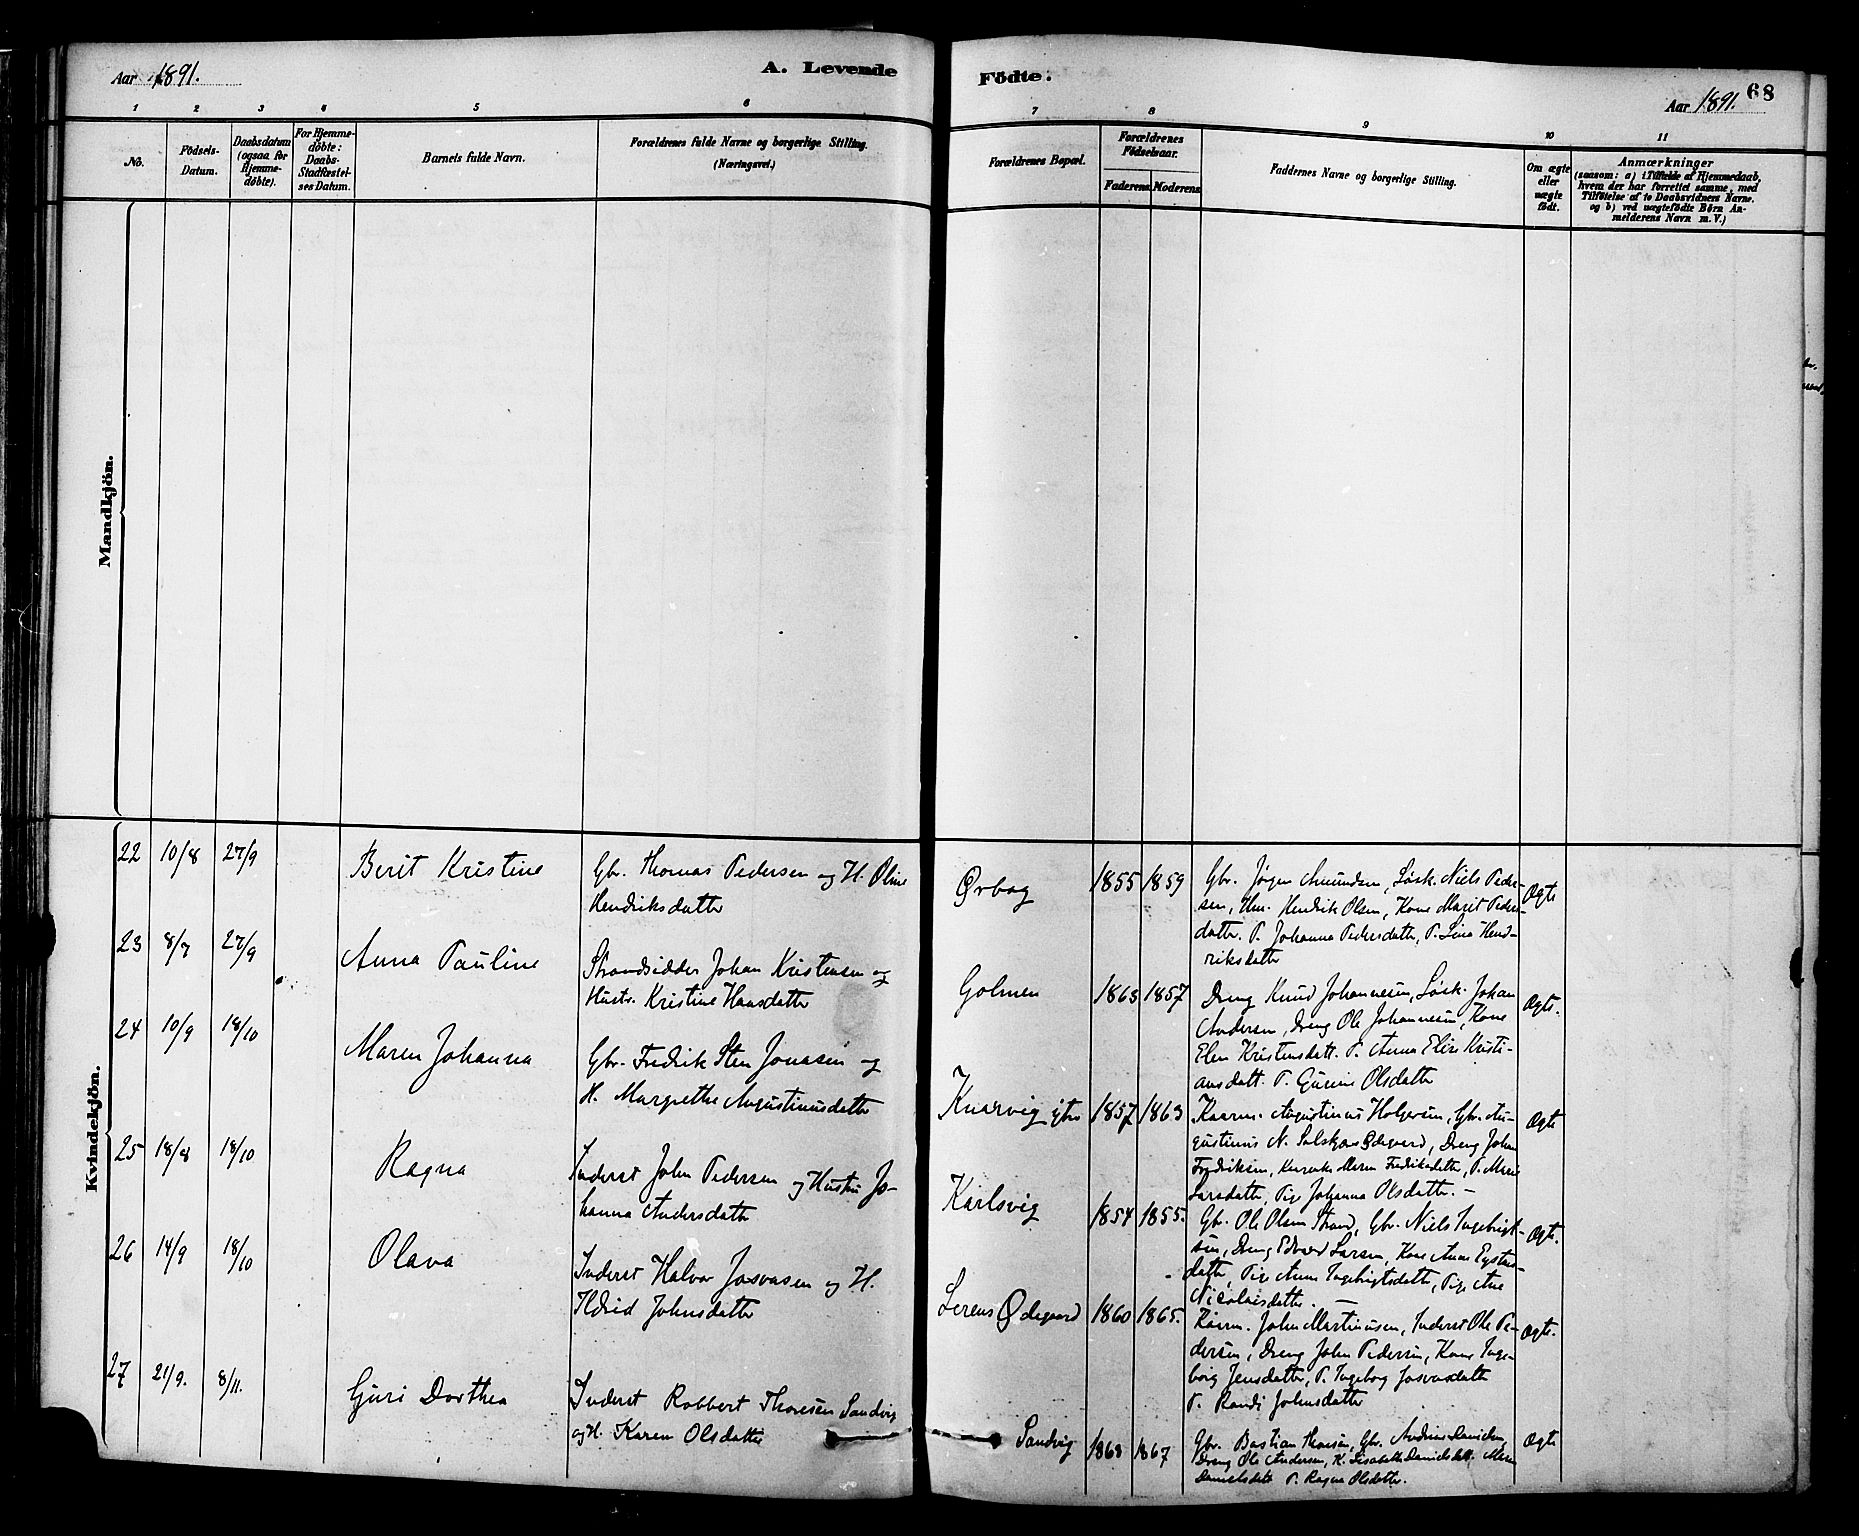 Aar 1891. A. Levende Födte. Aar 1891. 68
1 2 3 4 5 6 7 8 9 10 11
No.
Födsels-
Datum.
Daabsdatum
(ogsaa for
Hjemme-
döbte).
For Hjemme-
döbte:
Daabs-
Stadfæstel-
ses Datum.
Barnets fulde Navn.
Forældrenes fulde Navne og borgerlige Stilling.
(Næringsvei.)
Forældrenes Bopæl.
Forældrenes
Födselsaar.
Faderens. Moderens.
Faddernes Navne og borgerlige Stilling.
Om ægte
eller
uægte
födt.
Anmærkninger
(saasom: a) i Tilfælde af Hjemmedaab,
hvem der har forrettet samme, med
Tilföielse af to Daabsvidners Navne.
og b) ved uægtefödte Börn An-
melderens Navn m. V.)
Mandkjön.
Kvindekjön.
22 10/8 27/9 Berit Kristine
Gbr. Thomas Pedersen og H. Oline
Hendriksdatter
Ørbog 1855 1859
Gbr. Jørgen Amundsen, Løsk. Niels Peder-
sen, Hm. Hendrik Olsen, Kone Marit Peders-
datter. P. Johanna Pedersdatter, P. Lina Hend-
riksdatter
Ægte
23 8/7 27/9 Anna Pauline
Strandsidder Johan Kristensen og
Hustr. Kristine Hansdatter
Golmen 1863 1857
Dreng Knud Johannesen, Løsk. Johan
Andersen, Dreng Ole Johannesen, Kone
Elen Kristensdatt. P. Anna Elise Kristi-
ansdatt. P. Gurine Olsdatter
Ægte.
24 10/9 18/10 Maren Johanna
Gbr. Fredrik Sten Jonasen og
H. Margrethe Augustinusdatter
Knarvig ytre 1857 1863
Kaarm. Augustinus Holgersen, Gbr. Au-
gustinus N. Solskjærs Ødegaard, Dreng Johan
Fredriksen, Maren Fredriksdatter, P. Maren
Larsdatter, Pige Johanna Olsdatter. –
Ægte
25 18/8 18/10 Ragna
Inderst John Pedersen og Hustru Jo-
hanna Andersdatter
Karlsvig 1854 1855.
Gbr. Ole Olsen Strand, Gbr. Niels Ingebrigt-
sen, Dreng Edvard Larsen, Kone Anne
datter, Pige Anne Ingebrigtsdatter, Pige Ane
Nicolaisdatter. –
Ægte.
26 14/9 18/10 Olava
Inderst Halvor Josvasen og H.
Ildrid Johnsdatter
Lerens Ødegaard 1860 1865.
Kaarm. John Martinusen, Inderst Ole Pe-
dersen, Dreng John Pedersen, Kone Inge-
borg Jensdatter, P. Ingebog Josvasdatter
P. Randi Johnsdatter
Ægte.
27 21/9. 8/11. Guri Dorthea
Inderst Robbert Thoresen Sandvig
og H. Karen Olsdatter
Sandvig 1863 1867
Gbr. Bastian Thoresen, Gbr. Andreas Danielsen,
Dreng Ole Andersen, K. Lisabeth Danielsdatt. Maren
Danielsdatt P. Ragna Olsdatter.
Ægte